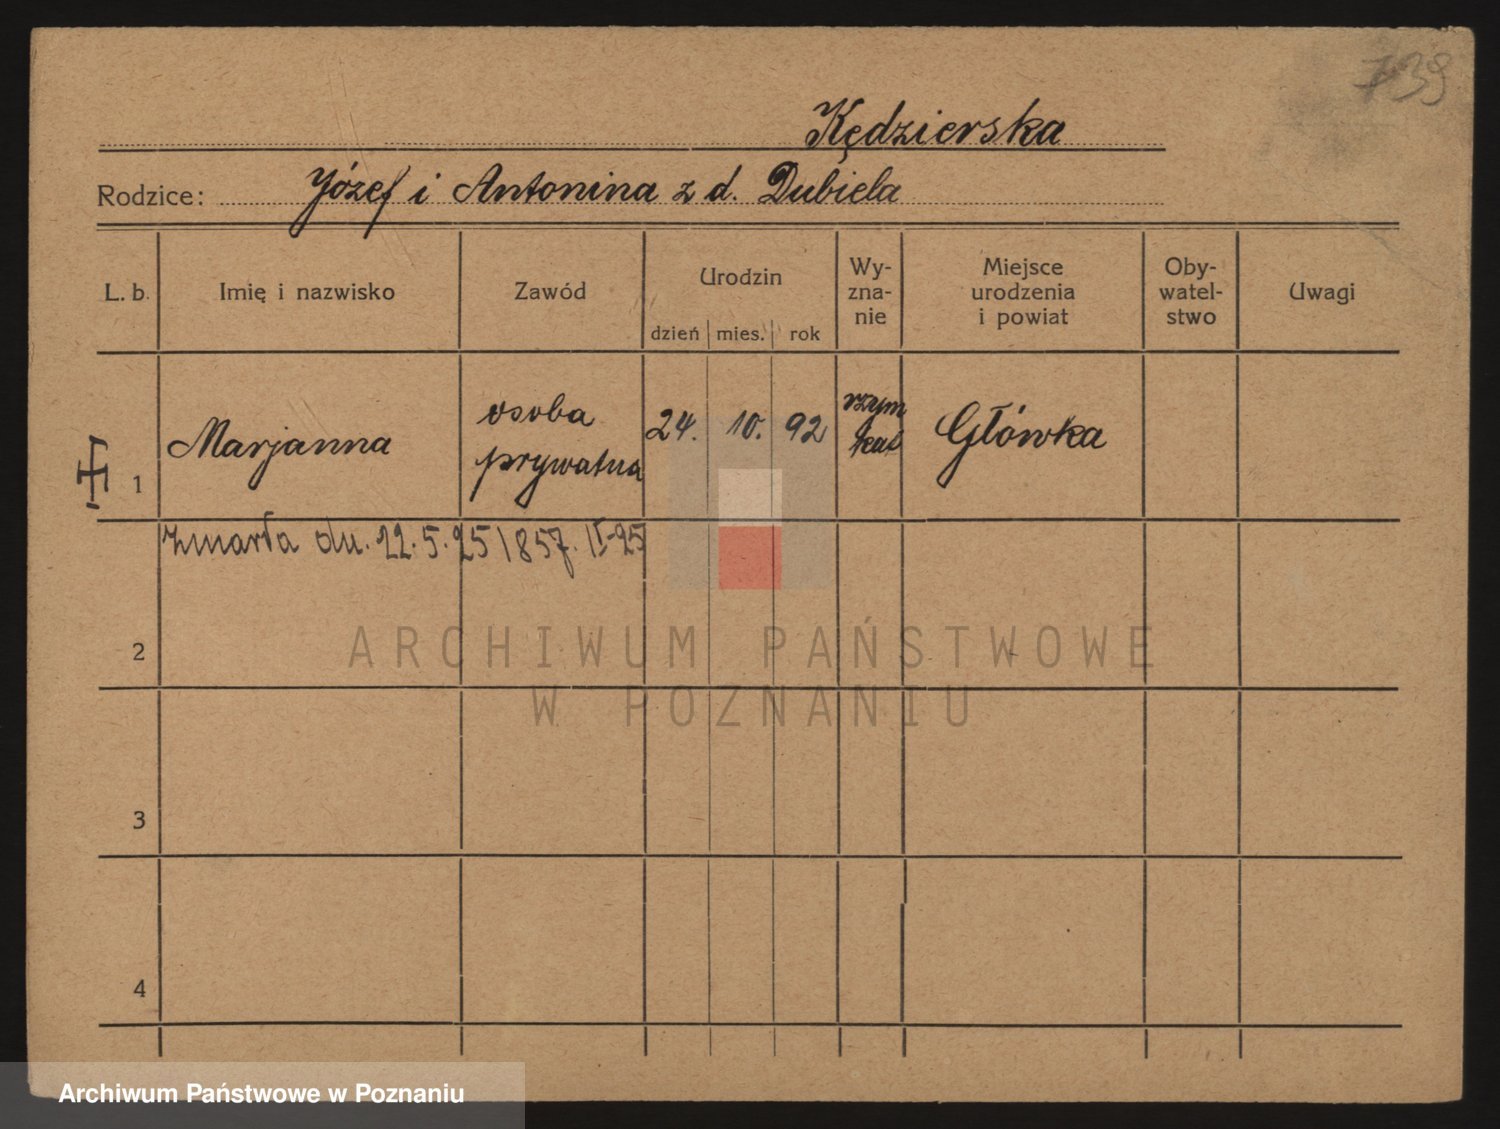 739
Kędzierska
Rodzice: Józef i Antonina z d. Dubiela
L. b. Imię i nazwisko Zawód Urodzin dzień mies. rok Wy-zna-nie Miejsce urodzenia i powiat Oby-watel-stwo Uwagi
1 Marjanna osoba prywatna 24. 10. 92 rzym kat Główka
zmarła dn. 22.5.25 1857. II-25
2
ARCHIWUM PAŃSTWOWE
W POZNANIU
3
4
Archiwum Państwowe w Poznaniu